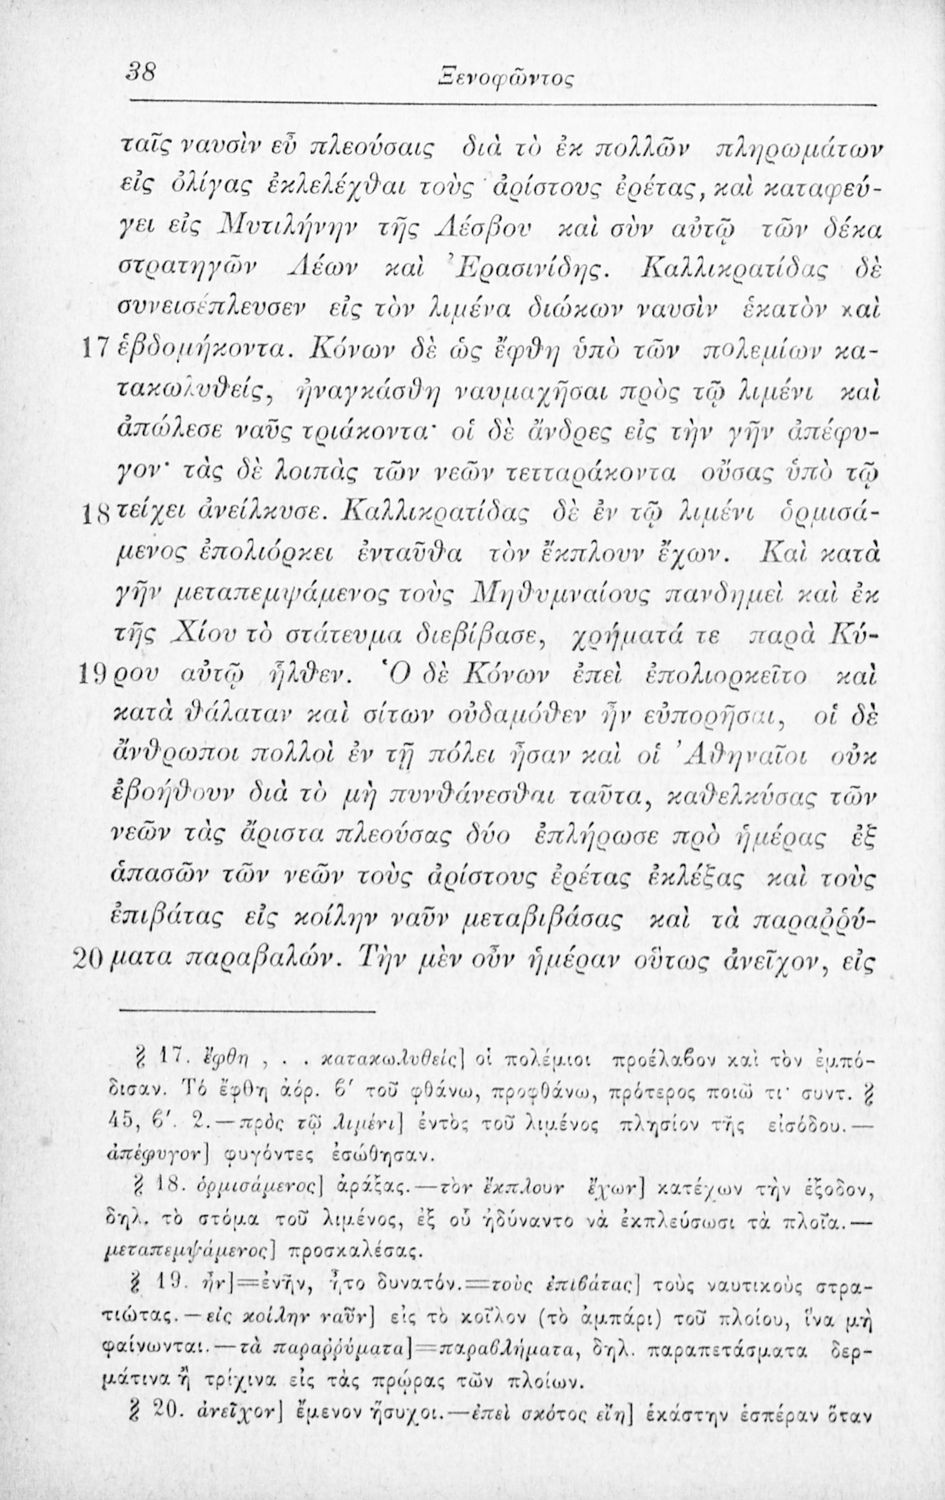 38 Ξενοφῶντος
ταῖς ναυσὶν εὖ πλεούσαις διὰ τὸ ἐκ πολλῶν πληρωμάτων
εἰς ὀλίγας ἐκλελέχθαι τοὺς ἀρίστους ἐρέτας, καὶ καταφεύ-
γει εἰς Μυτιλήνην τῆς Λέσβου καὶ σὺν αὐτῷ τῶν δέκα
στρατηγῶν Λέων καὶ Ἐρασινίδης. Καλλικρατίδας δὲ
συνεισέπλευσεν εἰς τὸν λιμένα διώκων ναυσὶν ἑκατὸν καὶ
17 ἑβδομήκοντα. Κόνων δὲ ὡς ἔφθη ὑπὸ τῶν πολεμίων κα-
τακωλυθείς, ἠναγκάσθη ναυμαχῆσαι πρὸς τῷ λιμένι καὶ
ἀπώλεσε ναῦς τριάκοντα· οἱ δὲ ἄνδρες εἰς τὴν γῆν ἀπέφυ-
γον· τὰς δὲ λοιπὰς τῶν νεῶν τετταράκοντα οὔσας ὑπὸ τῷ
18 τείχει ἀνείλκυσε. Καλλικρατίδας δὲ ἐν τῷ λιμένι ὁρμισά-
μενος ἐπολιόρκει ἐνταῦθα τὸν ἔκπλουν ἔχων. Καὶ κατὰ
γῆν μεταπεμψάμενος τοὺς Μηθυμναίους πανδημεὶ καὶ ἐκ
τῆς Χίου τὸ στάτευμα διεβίβασε, χρήματά τε παρὰ Κύ-
19 ρου αὐτῷ ἦλθεν. Ὁ δὲ Κόνων ἐπεὶ ἐπολιορκεῖτο καὶ
κατὰ θάλαταν καὶ σίτων οὐδαμόθεν ἦν εὐπορῆσαι, οἱ δὲ
ἄνθρωποι πολλοὶ ἐν τῇ πόλει ἦσαν καὶ οἱ Ἀθηναῖοι οὐκ
ἐβοήθουν διὰ τὸ μὴ πυνθάνεσθαι ταῦτα, καθελκύσας τῶν
νεῶν τὰς ἄριστα πλεούσας δύο ἐπλήρωσε πρὸ ἡμέρας ἐξ
ἁπασῶν τῶν νεῶν τοὺς ἀρίστους ἐρέτας ἐκλέξας καὶ τοὺς
ἐπιβάτας εἰς κοίλην ναῦν μεταβιβάσας καὶ τὰ παραῤῥύ-
20 ματα παραβαλών. Τὴν μὲν οὖν ἡμέραν οὕτως ἀνεῖχον, εἰς
§ 17. ἔφθη , . . κατακωλυθείς] οἱ πολέμιοι προέλαβον καὶ τὸν ἐμπό-
δισαν. Τό ἔφθη ἀόρ. β′ τοῦ φθάνω, προφθάνω, πρότερος ποιῶ τι· συντ. §
45, β′. 2.—πρὸς τῷ λιμένι] ἐντὸς τοῦ λιμένος πλησίον τῆς εἰσόδου.—
ἀπέφυγον] φυγόντες ἐσώθησαν.
§ 18. ὁρμισάμενος] ἀράξας.—τὸν ἔκπλουν ἔχων] κατέχων τὴν ἔξοδον,
δηλ. τὸ στόμα τοῦ λιμένος, ἐξ οὗ ἠδύναντο νὰ ἐκπλεύσωσι τὰ πλοῖα.—
μεταπεμψάμενος] προσκαλέσας.
§ 19. ἦν]=ἐνῆν, ἦτο δυνατόν.=τοὺς ἐπιβάτας] τοὺς ναυτικοὺς στρα-
τιώτας.—εἰς κοίλην ναῦν] εἰς τὸ κοῖλον (τὸ ἀμπάρι) τοῦ πλοίου, ἵνα μὴ
φαίνωνται.—τὰ παραῤῥύματα]=παραβλήματα, δηλ. παραπετάσματα δερ-
μάτινα ἢ τρίχινα εἰς τὰς πρώρας τῶν πλοίων.
§ 20. ἀνεῖχον] ἔμενον ἥσυχοι.—ἐπεὶ σκότος εἴη] ἑκάστην ἑσπέραν ὅταν